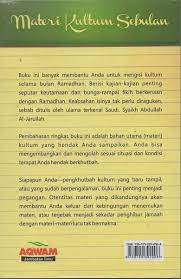 Materi Kultum Sebulan
Buku ini banyak membantu Anda untuk mengisi kultum
selama bulan Ramadhan. Berisi kajian-kajian penting
seputar keutamaan dan bunga-rampai fikih berkenaan
dengan Ramadhan. Keabsahan isinya tak perlu diragukan,
sebab ditulis oleh ulama terkenal Saudi, Syaikh Abdullah
Al-Jarullah.
Pembahasan ringkas buku ini adalah bahan utama (materi)
kultum yang hendak Anda sampaikan. Anda bisa
mengembangkan dan mengolah sesuai situasi dan kondisi
tempat Anda hendak berkhutbah.
Siapapun Anda—pengkhutbah kultum yang baru tampil,
atau yang sudah berpengalaman, buku ini penting menjadi
pegangan. Otentitas materi yang dikandungnya akan
membantu Anda keluar dari kebingungan menemukan
materi, atau terjebak menjadi sekadar penghibur jamaah
dengan materi-materi lucu tak bermakna.
AQWAM
Jembatan Ilmu